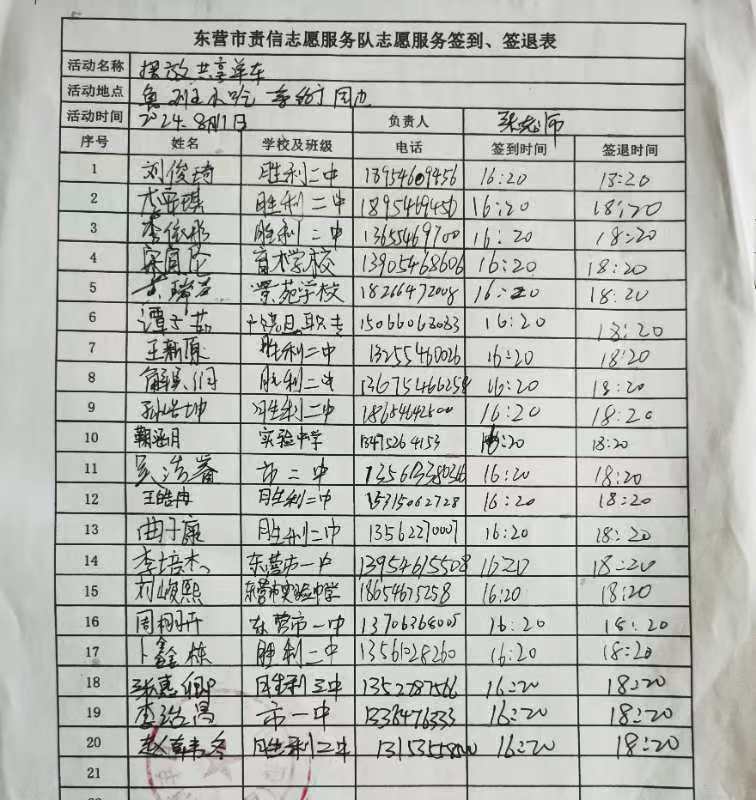 东营市责信志愿服务队志愿服务签到、签退表
活动名称 摆放共享单车
活动地点 周边
活动时间 2024.8月1日 负责人 张老师
序号 姓名 学校及班级 电话 签到时间 签退时间
1 刘俊琦 胜利二中 18954609456 16:20 18:20
2 胜利二中 16:20 18:20
3 李俊彤 胜利二中 13655469700 16:20 18:20
4 宋宜伦 育才学校 13905468606 16:20 18:20
5 景苑学校 18266472008 16:20 18:20
6 谭子茹 16:20 18:20
7 王新原 胜利二中 13255460026 16:20 18:20
8 胜利二中 13675466258 16:20 18:20
9 孙浩坤 胜利二中 16:20 18:20
10 鞠涵月 实验中学 13475264153 16:20 18:20
11 市二中 16:20 18:20
12 王皓冉 胜利二中 15315062728 16:20 18:20
13 曲子康 胜利二中 13562270007 16:20 18:20
14 李培杰 东营市一中 13954615508 16:20 18:20
15 刘峻熙 东营市实验中学 18654675258 16:20 18:20
16 周栩开 东营市一中 16:20 18:20
17 卜鑫栋 胜利二中 13561028260 16:20 18:20
18 张惠卿 胜利三中 16:20 18:20
19 李浩昌 市一中 16:20 18:20
20 胜利二中 16:20 18:20
21